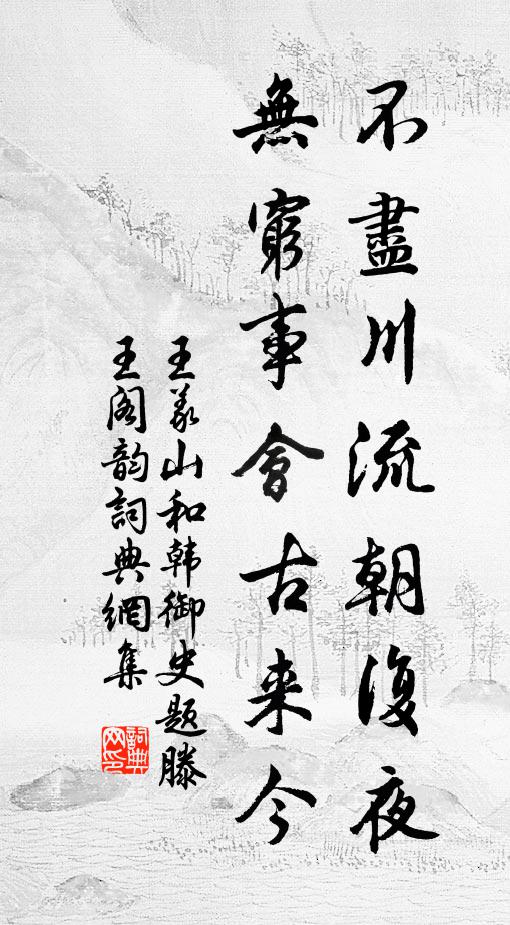 不盡川流朝復夜
無窮事會古来今
王義山和韩御史題滕
王阁韵詞典網集
詞典网印